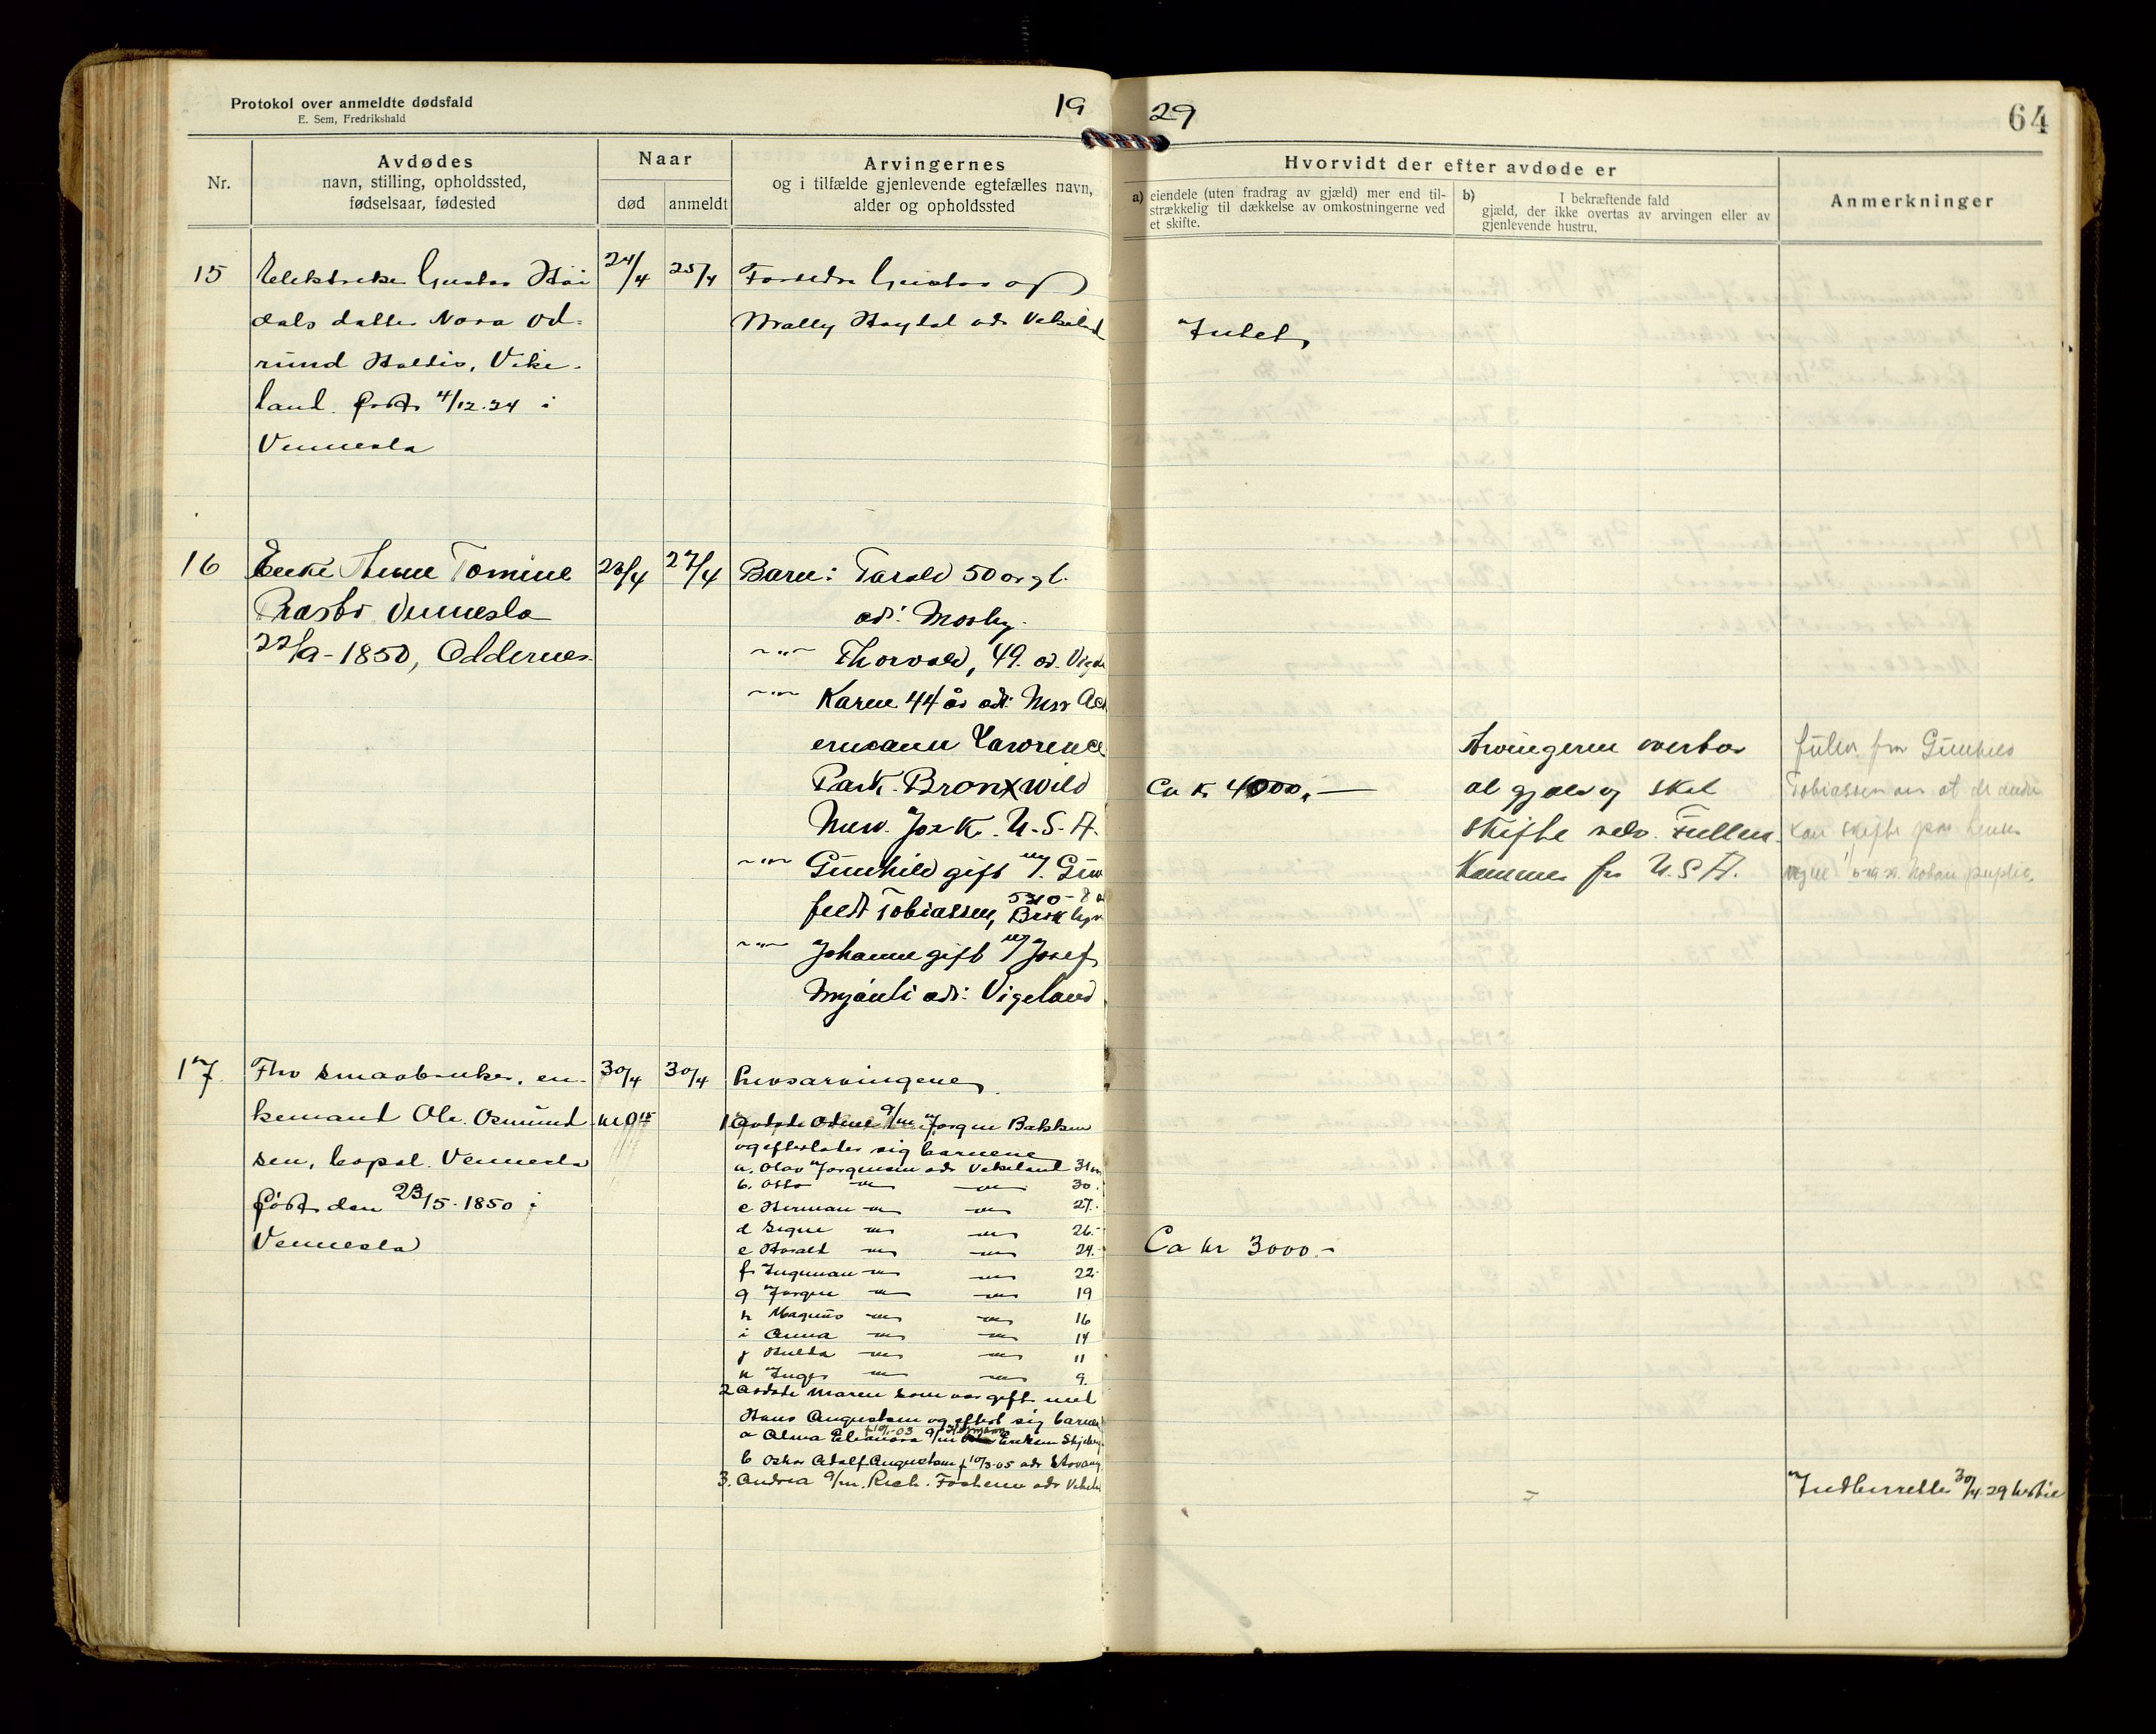 Protokol over anmeldte dødsfald
E. Sem, Fredrikshald
19 29
64
Nr.
Avdødes
navn, stilling, opholdssted,
fødselsaar, fødested
Naar
død
anmeldt
Arvingernes
og i tilfælde gjenlevende egtefælles navn,
alder og opholdssted
Hvorvidt der efter avdøde er
a) eiendele (uten fradrag av gjæld) mer end til-
strækkelig til dækkelse av omkostningerne ved
et skifte.
b) I bekræftende fald
gjæld, der ikke overtas av arvingen eller av
gjenlevende hustru.
Anmerkninger
15
Elektriker Gustav Höi
dals datter Nora Od-
rund Haldis, Vike-
land. født 4/12.24 i
Vennesla
24/4
25/4
Foreldre Gustav og
Wally Høydal adr Vikeland
Intet
16
Enke Anne Tomine
Vennesla
22/9-1850, Oddernes
23/4
27/4
Barn: Tarald 50 år gl.
adr: Mosby.
Thorvald, 49. ad.
Karen 44 år adr: Mrs
Lawrence
Park. Bronxwild
New. York. U.S.A.
Gunhild gift m/
Tobiassen,
Johanne gift m/ Josef
adr: Vigeland
Ca Kr 4000,-
Arvingerne overtar
al gjæld og skal
skifte selv. Fullm.
Kommer fra U.S.A.
fullm. fra Gunhild
Tobiassen om at de andre
kan skifte på hennes
vegne
17
Fhv smaabruker, en-
kemand Ole Osmund-
sen, Vennesla
født den 23/5-1850 i
Vennesla
30/4
kl 0
30/4
Livsarvingene
1 avdøde Odine g/m Jørgen Bakken
og efterlater sig barnene
a. Olav Jørgensen adr Vikeland 31 år
b. Otto 30.
c Herman 27.
d Signe 26.
e Harald 24.
f Ingeman 22
g Jørgen 19
h Magnus 16
i Anna 14
j Hulda 11
k Inger 9.
2 avdøde Maren som var gift med
Hans Augustsen og efterl sig barnene
a Alma Eleanora g/m Eriksen
b Oskar Adolf Augustsen f 10/3-05 adr
3. Andrea g/m. Rich. adr
Ca kr 3000.-
30/4 29